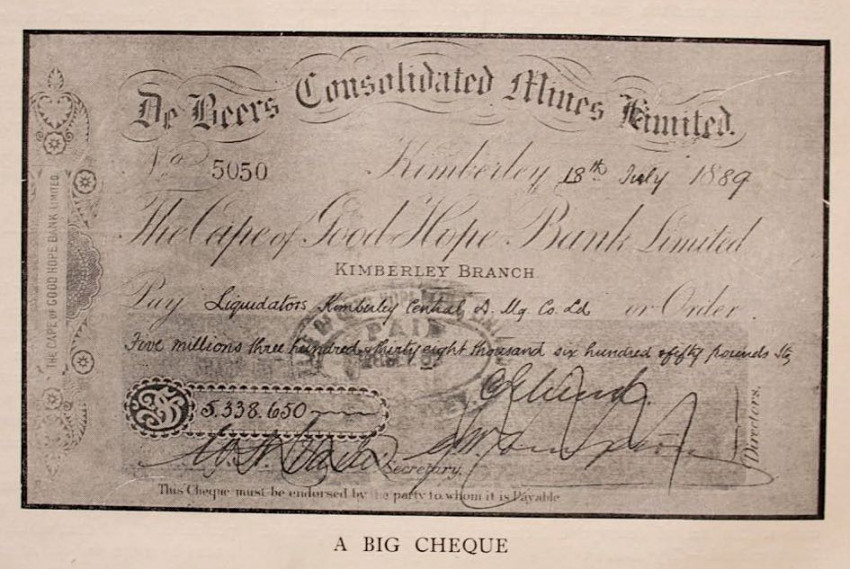 De Beers Consolidated Mines Limited.
No 5050 Kimberley 18th July 1889
THE CAPE OF GOOD HOPE BANK LIMITED.
The Cape of Good Hope Bank Limited
KIMBERLEY BRANCH
Pay Liquidators Kimberley Central D. Mg. Co. Ld or Order
Five millions three hundred & thirty eight thousand six hundred & fifty pounds Stg
PAID
5.338.650
Directors.
Secretary.
This Cheque must be endorsed by the party to whom it is Payable
A BIG CHEQUE